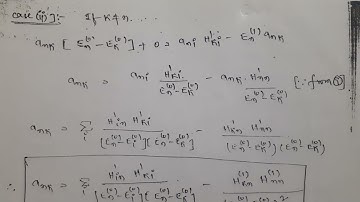 case (ii) :- If K≠n ....
a_nk [ E_n^(0) - E_k^(0) ] + 0 = a_ni H'_ki - E_n^(1) a_nk
a_nk = a_ni H'_ki / (E_n^(0) - E_k^(0)) - a_nk H'_nn / (E_n^(0) - E_k^(0)) [∵ from ①]
a_nk = Σ_i H'_in H'_ki / [E_n^(0) - E_i^(0)] [E_n^(0) - E_k^(0)] - H'_kn H'_nn / (E_n^(0) - E_k^(0)) (E_n^(0) - E_k^(0))
∴ a_nk = Σ_i H'_in H'_ki / [E_n^(0) - E_i^(0)] (E_n^(0) - E_k^(0)) - H'_kn H'_nn